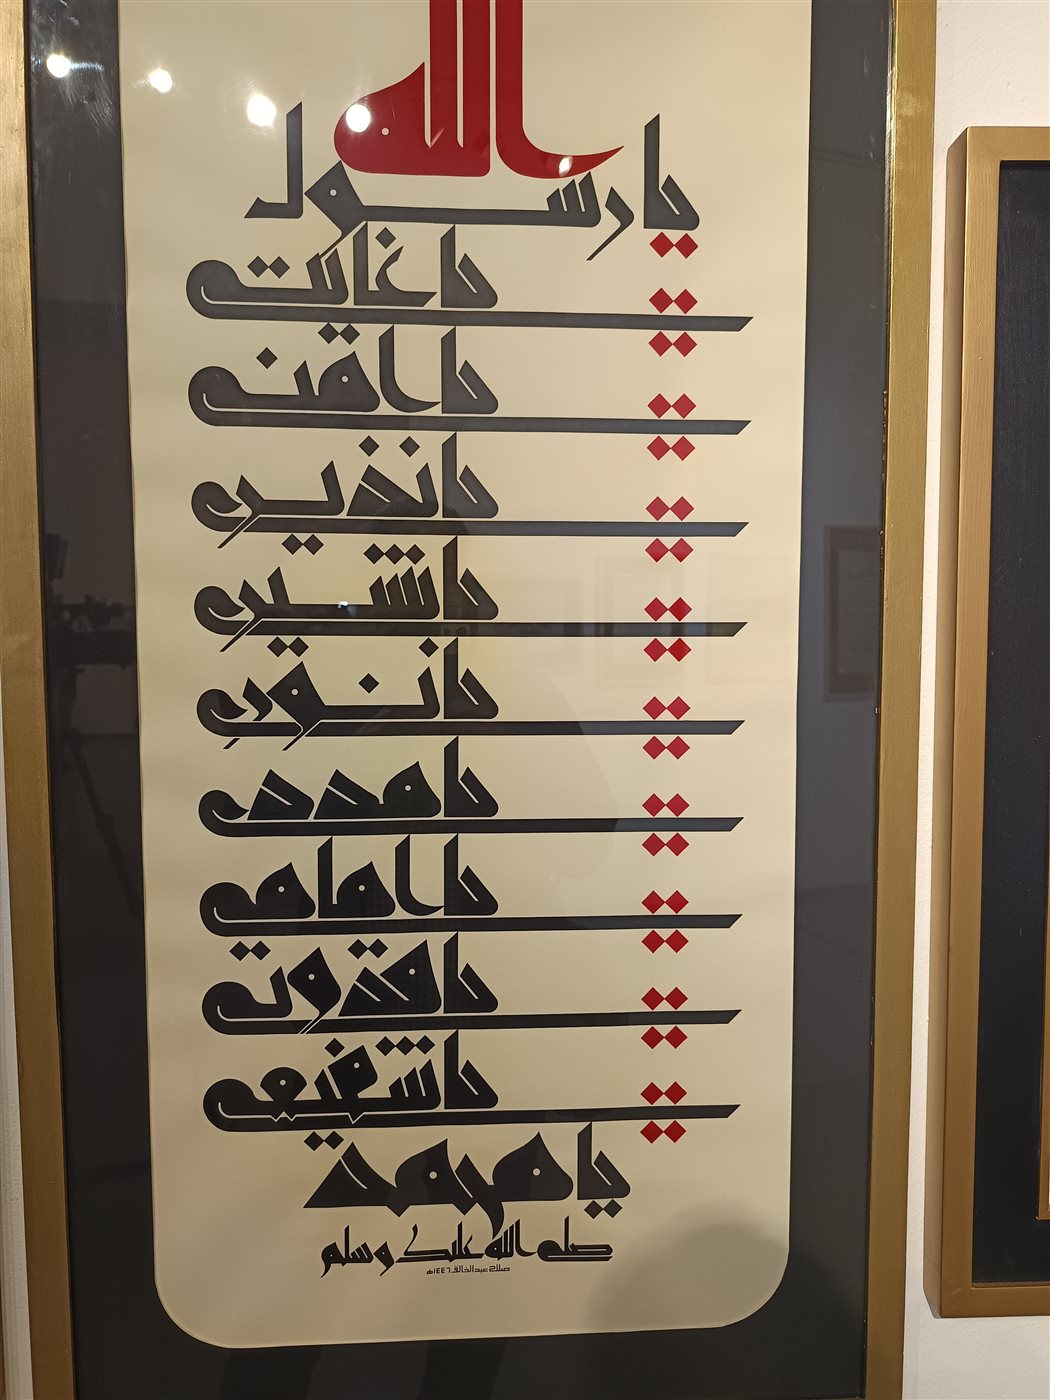 الله
يا رسول
يا غايتي
يا امني
يا نذيري
يا بشيري
يا نوري
يا مددي
يا امامي
يا قدوتي
يا شفيعي
يا محمد
صلى الله عليك وسلم
صلاح عبدالخالق ١٤٤٦هـ